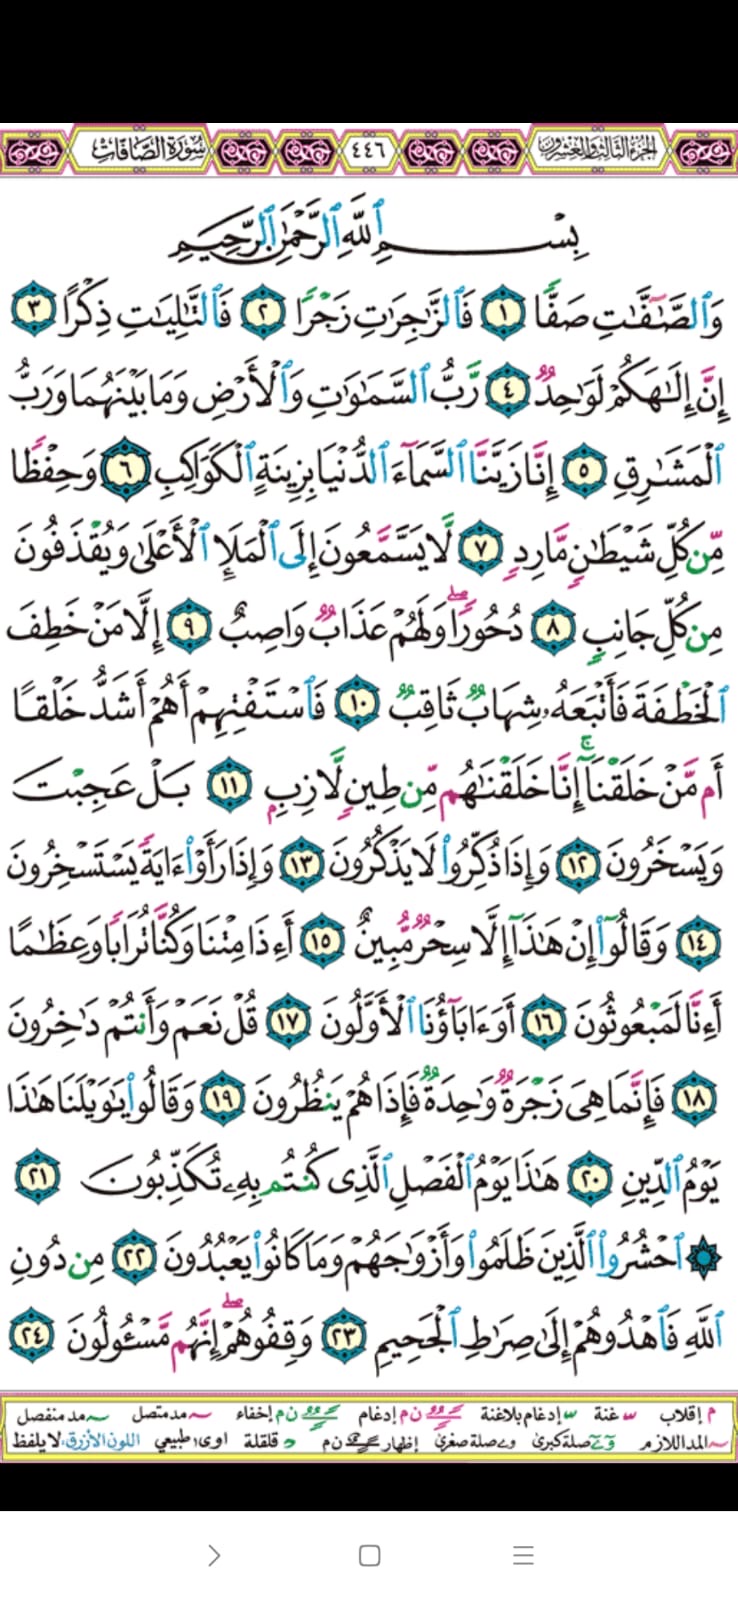 الجزء الثالث والعشرون ٤٤٦ سورة الصافات
بِسْمِ ٱللَّهِ ٱلرَّحْمَٰنِ ٱلرَّحِيمِ
وَٱلصَّٰٓفَّٰتِ صَفًّا ١ فَٱلزَّٰجِرَٰتِ زَجْرًا ٢ فَٱلتَّٰلِيَٰتِ ذِكْرًا ٣
إِنَّ إِلَٰهَكُمْ لَوَٰحِدٌ ٤ رَّبُّ ٱلسَّمَٰوَٰتِ وَٱلْأَرْضِ وَمَا بَيْنَهُمَا وَرَبُّ
ٱلْمَشَٰرِقِ ٥ إِنَّا زَيَّنَّا ٱلسَّمَآءَ ٱلدُّنْيَا بِزِينَةٍ ٱلْكَوَاكِبِ ٦ وَحِفْظًا
مِّن كُلِّ شَيْطَٰنٍ مَّارِدٍ ٧ لَّا يَسَّمَّعُونَ إِلَى ٱلْمَلَإِ ٱلْأَعْلَىٰ وَيُقْذَفُونَ
مِن كُلِّ جَانِبٍ ٨ دُحُورًا ۖ وَلَهُمْ عَذَابٌ وَاصِبٌ ٩ إِلَّا مَنْ خَطِفَ
ٱلْخَطْفَةَ فَأَتْبَعَهُۥ شِهَابٌ ثَاقِبٌ ١٠ فَٱسْتَفْتِهِمْ أَهُمْ أَشَدُّ خَلْقًا
أَم مَّنْ خَلَقْنَآ ۚ إِنَّا خَلَقْنَٰهُم مِّن طِينٍ لَّازِبٍ ١١ بَلْ عَجِبْتَ
وَيَسْخَرُونَ ١٢ وَإِذَا ذُكِّرُوا۟ لَا يَذْكُرُونَ ١٣ وَإِذَا رَأَوْا۟ ءَايَةً يَسْتَسْخِرُونَ
١٤ وَقَالُوٓا۟ إِنْ هَٰذَآ إِلَّا سِحْرٌ مُّبِينٌ ١٥ أَءِذَا مِتْنَا وَكُنَّا تُرَابًا وَعِظَٰمًا
أَءِنَّا لَمَبْعُوثُونَ ١٦ أَوَءَابَآؤُنَا ٱلْأَوَّلُونَ ١٧ قُلْ نَعَمْ وَأَنتُمْ دَٰخِرُونَ
١٨ فَإِنَّمَا هِىَ زَجْرَةٌ وَٰحِدَةٌ فَإِذَا هُمْ يَنظُرُونَ ١٩ وَقَالُوا۟ يَٰوَيْلَنَا هَٰذَا
يَوْمُ ٱلدِّينِ ٢٠ هَٰذَا يَوْمُ ٱلْفَصْلِ ٱلَّذِى كُنتُم بِهِۦ تُكَذِّبُونَ ٢١
۞ ٱحْشُرُوا۟ ٱلَّذِينَ ظَلَمُوا۟ وَأَزْوَٰجَهُمْ وَمَا كَانُوا۟ يَعْبُدُونَ ٢٢ مِن دُونِ
ٱللَّهِ فَٱهْدُوهُمْ إِلَىٰ صِرَٰطِ ٱلْجَحِيمِ ٢٣ وَقِفُوهُمْ ۖ إِنَّهُم مَّسْـُٔولُونَ ٢٤
م إقلاب غنة إدغام بلاغنة ن م إدغام ن م إخفاء مد متصل مد منفصل
المد اللازم صلة كبرى صلة صغرى إظهار ن م قلقلة اوى طبيعي اللون الأزرق: لا يلفظ